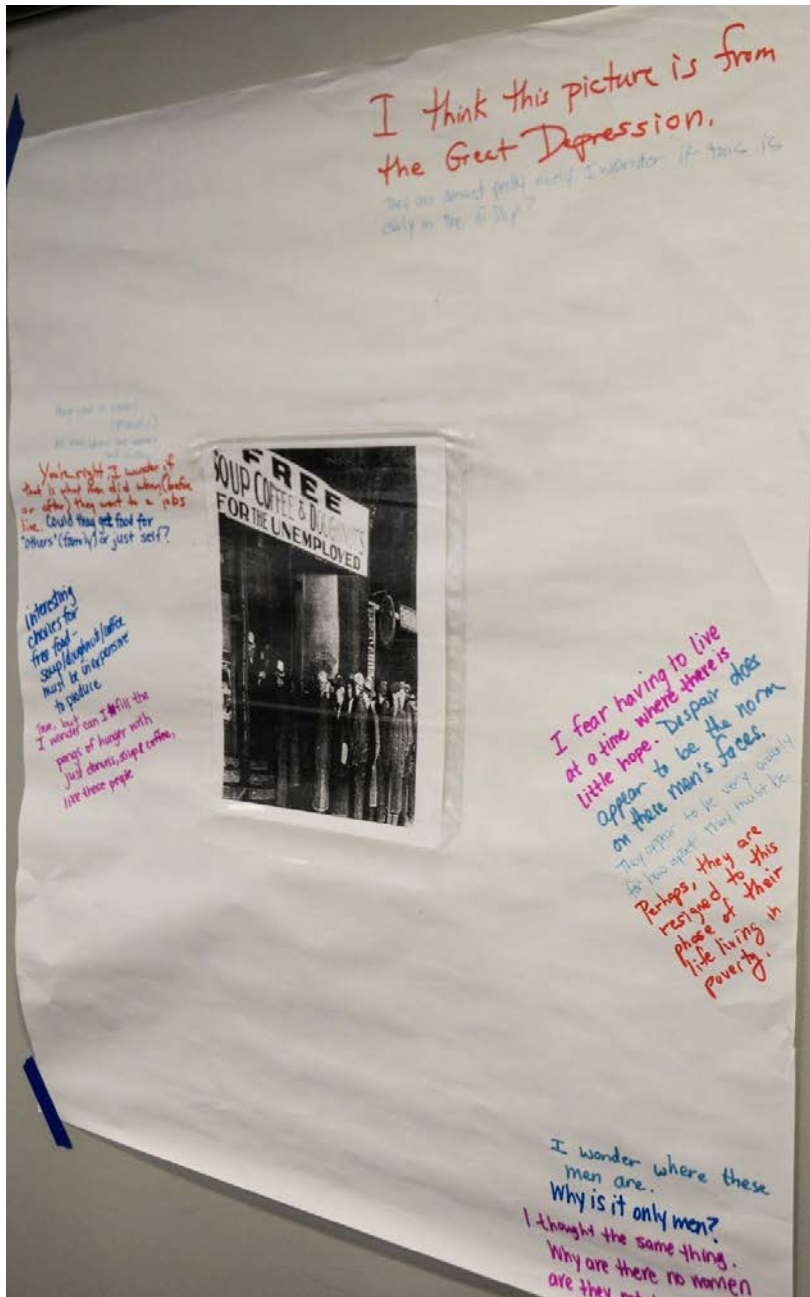 I think this picture is from
the Great Depression.
They are dressed pretty nicely I wonder if this is
early in the G Dep?
You're right, I wonder if
that is what men did when (before
or after) they went to a jobs
line. Could they get food for
"others" (family) or just self?
interesting
choices for
free food-
soup/doughnut/coffee
must be inexpensive
to produce
True, but
I wonder can I fill the
pangs of hunger with
just donuts, soup & coffee,
like these people
FREE
SOUP COFFEE & DOUGHNUTS
FOR THE UNEMPLOYED
I fear having to live
at a time where there is
little hope. Despair does
appear to be the norm
on these men's faces.
They appear to be very orderly
for how upset they must be.
Perhaps, they are
resigned to this
phase of their
life living in
poverty.
I wonder where these
men are.
Why is it only men?
I thought the same thing.
Why are there no women
are they